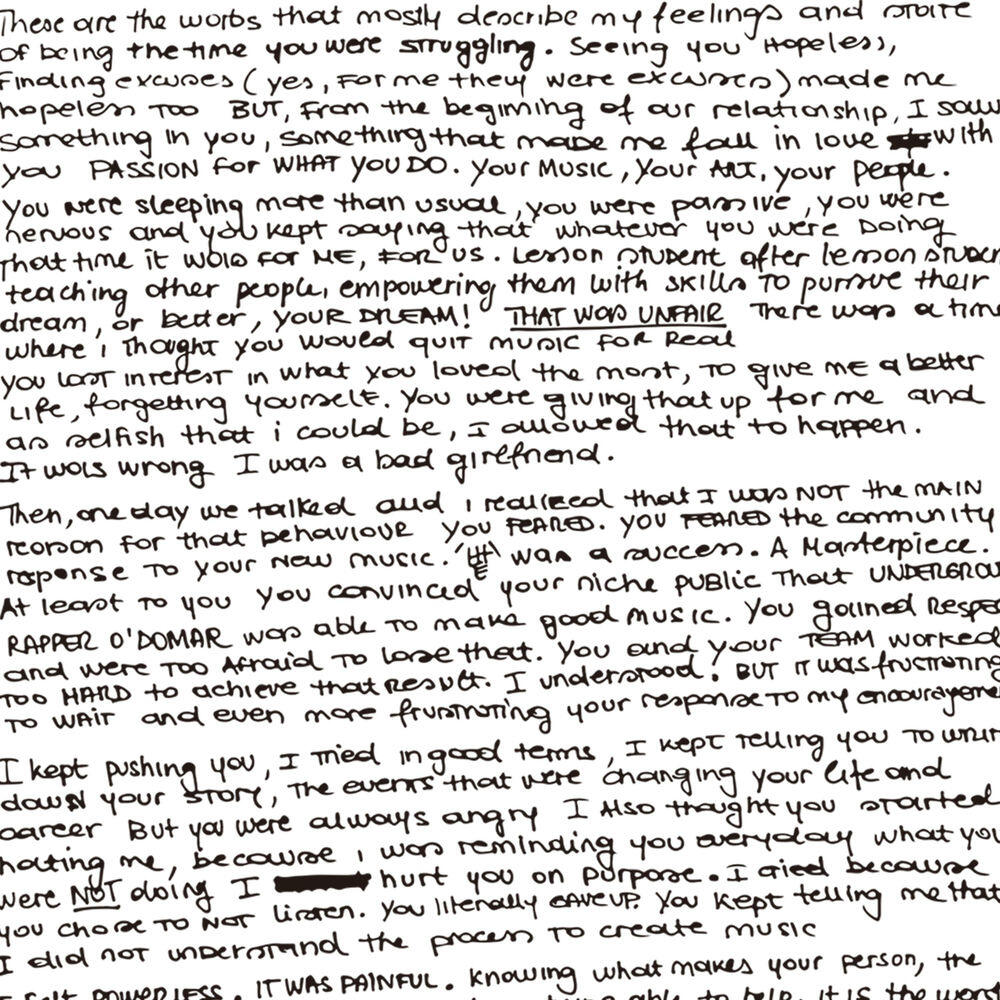 These are the words that mostly describe my feelings and state
of being the time you were struggling. Seeing you Hopeless,
Finding excuses (yes, FOR me they were excuses) made me
hopeless TOO BUT, From the beginning of our relationship, I saw
something in you, something that made me fall in love with
you PASSION for WHAT YOU DO. Your Music, Your ART, your People.
You were sleeping more than usual, you were passive, you were
nervous and you kept saying that whatever you were Doing
that time it was FOR ME, FOR US. Lesson student after lesson studen
teaching other people, empowering them with skills to pursue their
dream, or better, YOUR DREAM! THAT WAS UNFAIR There was a time
where i Thought you would QUIT music FOR Real
you lost interest in what you loved the most, TO give ME a better
Life, forgetting yourself. You were giving that up for me and
as selfish that i could be, I allowed that to happen.
IT was wrong I was a bad girlfriend.
Then, one day we talked and i realized that I was NOT the MAIN
reason for that behaviour you FEARED. you FEARED the community
response to your New music. was a success. A Masterpiece.
At least to you you convinced your niche PUBLIC That UNDERGROU
RAPPER O'DOMAR was able to make good music. You gained Respe
and were TOO Afraid TO lose that. You and your TEAM worked
TOO HARD to achieve that Result. I understood. BUT IT WAS frustrating
TO WAIT and even more frustrating your response TO my encourageme
I kept pushing you, I tried in good terms, I kept Telling you to writ
down your STORY, The events that were changing your life and
career But you were always angry I Also thought you started
hating me, because i was reminding you everyday what you
were NOT doing I hurt you on purpose. I cried because
you chose to NOT Listen. You literally GAVE UP. You kept telling me that
I did not understand the process to create music
I felt POWERLESS. IT WAS PAINFUL. Knowing what makes your person, the
able to help, it is the worst